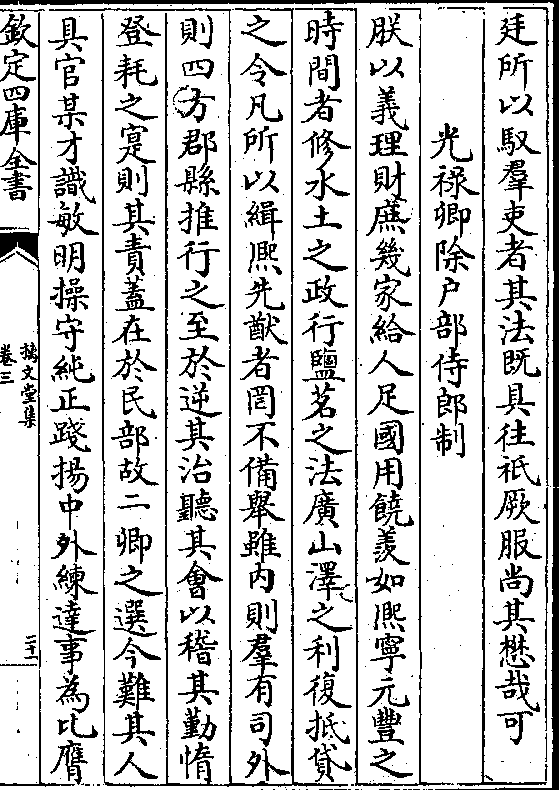 廷所以馭羣吏者其法既具往祗厥服尚其懋哉可
光禄卿除户部侍郎制
朕以義理財蔗幾家給人足國用饒羨如熙寧元豐之
時間者修水土之政行鹽茗之法廣山澤之利復抵貸
之令凡所以緝熙先猷者罔不備舉雖内則羣有司外
則四方郡縣推行之至於逆其治聽其會以稽其勤惰
登耗之寔則其責蓋在於民部故二卿之選今難其人
具官某才識敏明操守純正踐揚中外練達事為比膺
欽定四庫全書
摛文堂集
卷三
二十一